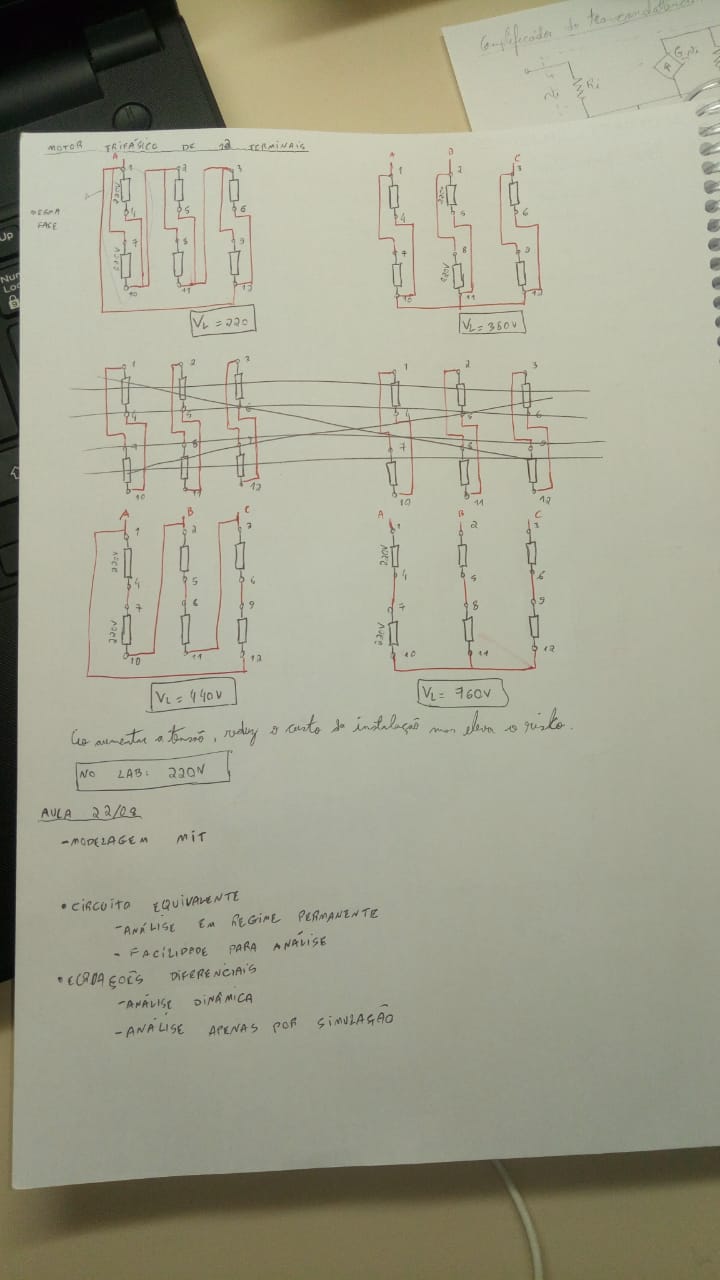 Amplificador de transcondutância
Ri
Vi
MOTOR TRIFÁSICO DE 12 TERMINAIS
A
1 2 3
220V
4 5 6
MESMA FASE
7 8 9
220V
10 11 12
VL = 220
A B C
1 2 3
220V
4 5 6
7 8 9
220V
10 11 12
VL = 380V
1 2 3
4 5 6
7 8 9
10 11 12
1 2 3
4 5 6
7 8 9
10 11 12
A B C
1 2 3
220V
4 5 6
7 8 9
220V
10 11 12
VL = 440V
A B C
1 2 3
220V
4 5 6
7 8 9
220V
10 11 12
VL = 760V
Ao aumentar a tensão, reduz o custo da instalação mas eleva o risko.
NO LAB: 220V
AULA 22/08
- MODELAGEM MIT
• CIRCUITO EQUIVALENTE
- ANÁLISE EM REGIME PERMANENTE
- FACILIDADE PARA ANÁLISE
• EQUAÇOÊS DIFERENCIAIS
- ANÁLISE DINÂMICA
- ANÁLISE APENAS POR SIMULAÇÃO